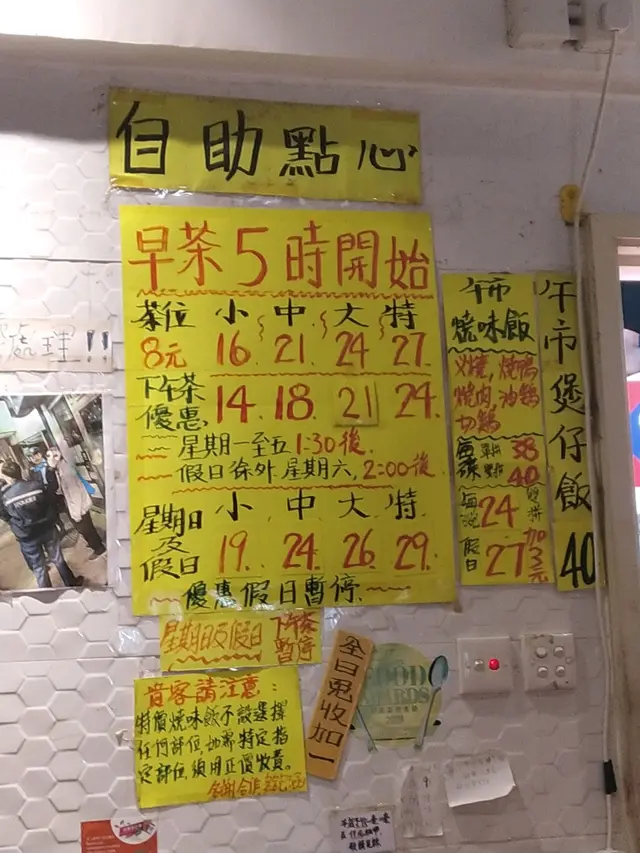 自助點心
早茶5時開始
茶位 小 中 大 特
8元 16 21 24 27
下午茶
優惠 14. 18. 21 24.
星期一至五 1:30後.
假日除外 星期六, 2:00後.
星期日 小 中 大 特
及
假日 19. 24. 26. 29.
優惠假日暫停.
星期日及假日 下午茶
暫停
貴客請注意:
特價燒味飯不設選擇
任何部位, 如需特定指
定部位, 須用正價收費。
全日免收加一
午市
燒味飯
叉燒, 燒鴨
燒肉, 油雞
切雞
38
40
24
假日 27
加3元
午市煲仔飯 40
處理!!